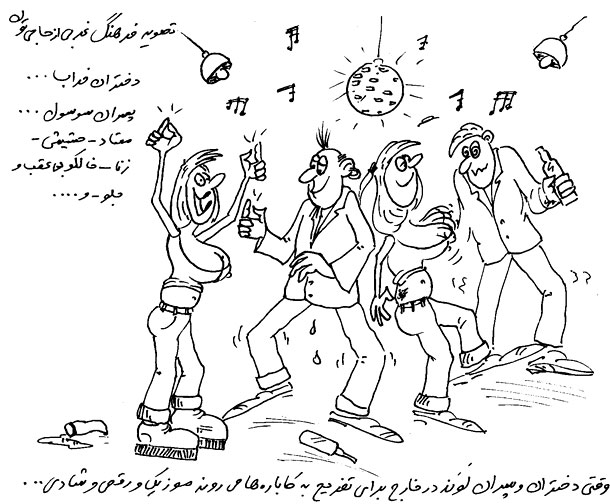 تصویر فرهنگ غربی از حاجی
دختران خراب ...
پسران سوسول ...
معتاد - حشیشی -
زنا - خالکوبی عقب و
جلو - و ....
وقتی دختران و پسران لَوَند در خارج برای تفریح به کاباره ها می روند موزیک و رقص و شادی ...